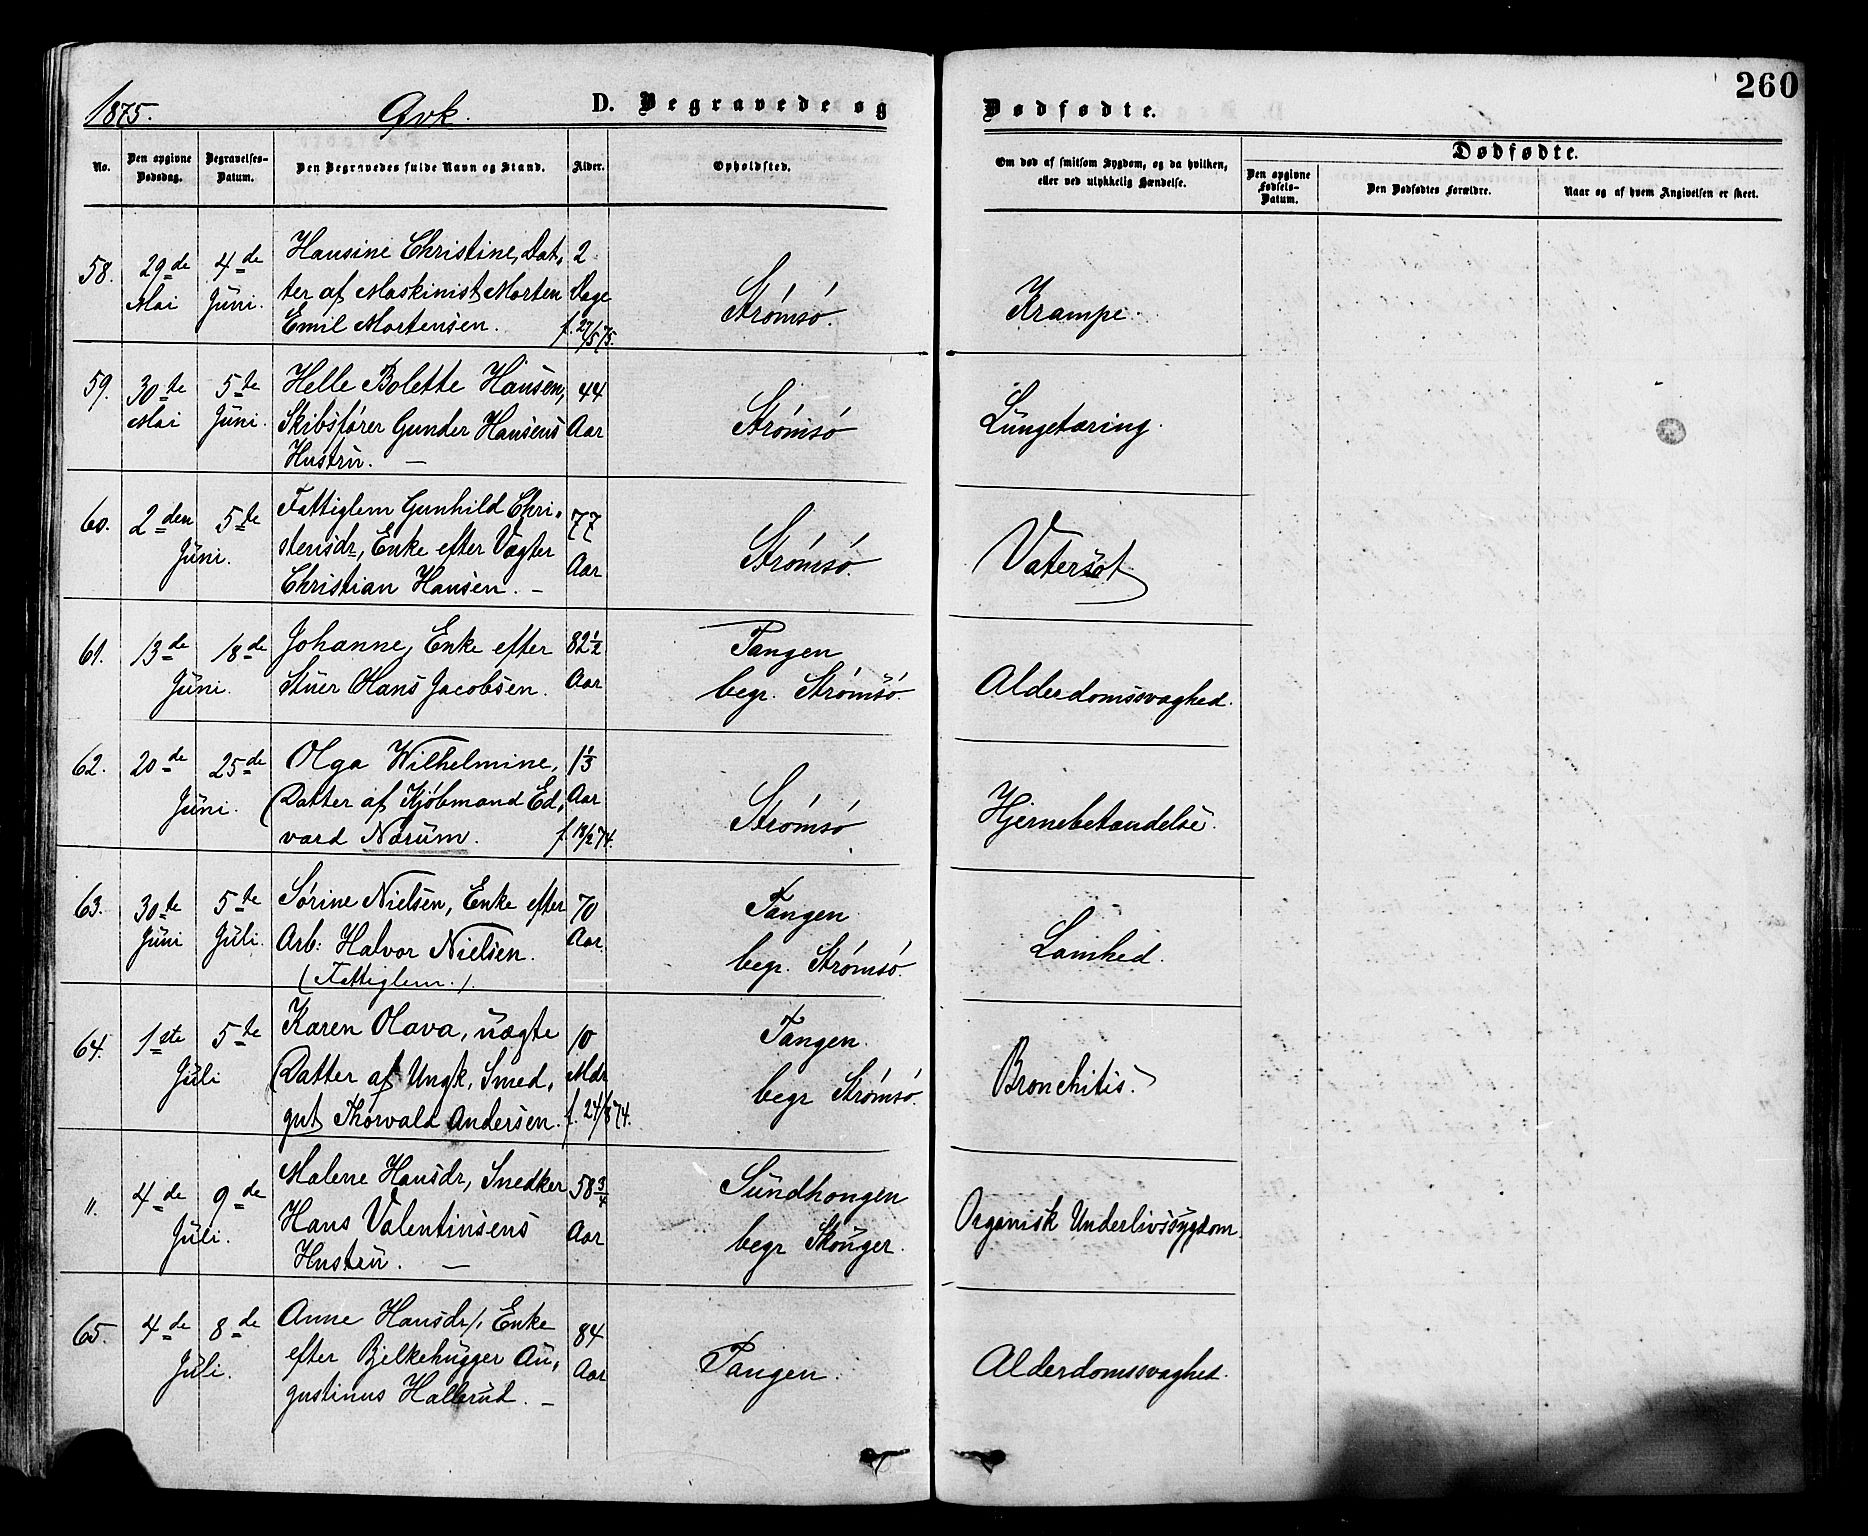 260
1875. Qvk. D. Begravede og Dødfødte.
No. Den opgivne Dødsdag. Begravelses-Datum. Den Begravedes fulde Navn og Stand. Alder. Opholdsted. Om død af smitsom Sygdom, og da hvilken, eller ved ulykkelig Hændelse. Dødfødte.
Den opgivne Fødsels-Datum. Den Dødfødtes Forældre. Naar og af hvem Angivelsen er skeet.
58. 29de 4de Hansine Christine, Dat- 2
Mai Juni. ter af Maskinist Morten Dage Strømsø. Krampe.
Emil Mortensen. f. 27/5 75.
59. 30te 5te Helle Bolette Hansen, 44
Mai Juni. Skibsfører Gunder Hansens Aar Strømsø Lungetæring.
Hustru. —
60. 2den 5te Fattiglem Gunhild Chri- 77
Juni. stensdr, Enke efter Vægter Strømsø. Vatersot
Christian Hansen. — Aar
61. 13de 18de Johanne, Enke efter 82½ Tangen
Juni. Stuer Hans Jacobsen. Aar begr. Strømsø Alderdomssvaghed.
62. 20de 25de Olga Wilhelmine, 1⅓
Juni. Datter af Kjøbmand Ed- Aar Strømsø Hjernebetændelse.
vard Narum. f. 18/2 74.
63. 30te 5te Sørine Nielsen, Enke efter 70 Tangen
Juni Juli. Arb: Halvor Nielsen. Aar begr. Strømsø. Lamhed.
(Fattiglem.)
64. 1ste 5te Karen Olava, uægte 10 Tangen.
Juli Datter af Ungk. Smed- Mdr begr Strømsø. Bronchitis.
gut Thorvald Andersen. f. 24/8 74.
". 4de 9de Malene Hansdr, Snedker 58¾ Sundhougen
Juli. Hans Valentinsens Aar begr Skouger. Organisk Underlivssygdom.
Hustru. —
65. 4de 8de Anne Hansdr, Enke 84
Juli. efter Bjelkehugger Au- Aar Tangen. Alderdomssvaghed.
gustinus Hallerud. —